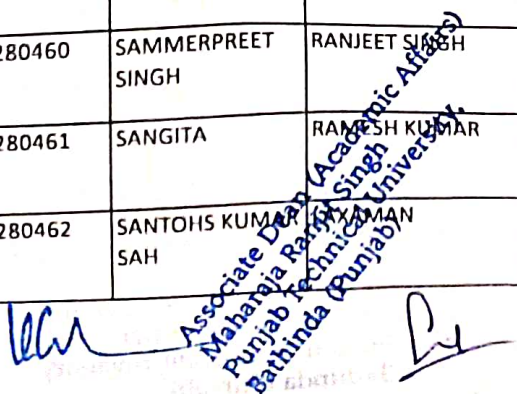 280460 SAMMERPREET RANJEET SINGH
SINGH
280461 SANGITA RAMESH KUMAR
280462 SANTOHS KUMAR LAXAMAN
SAH
Associate Dean (Academic Affairs)
Maharaja Ranjit Singh
Punjab Technical University,
Bathinda (Punjab)